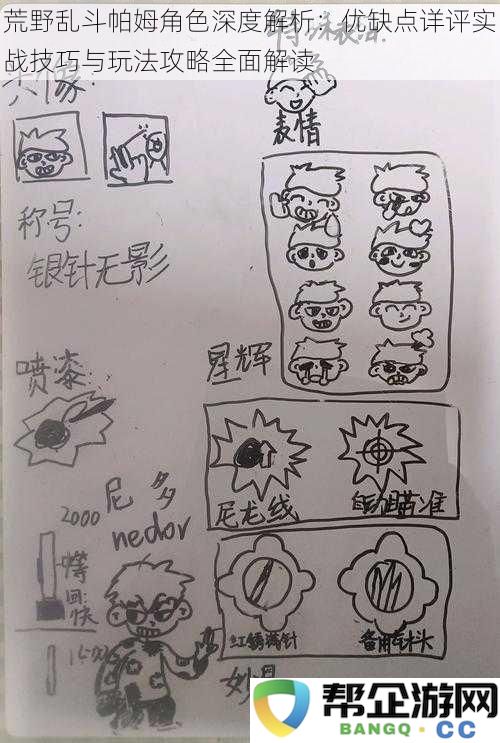 荒野乱斗帕姆角色深度解析：优缺点详评实
战技巧与玩法攻略全面解读
头像:
表情
称号:
银针无影
星辉
喷漆:
尼龙线
瞄准
尼多
nedor
2000
回:快
红锈满针
备用针头
帮企游网
BANGQ.CC